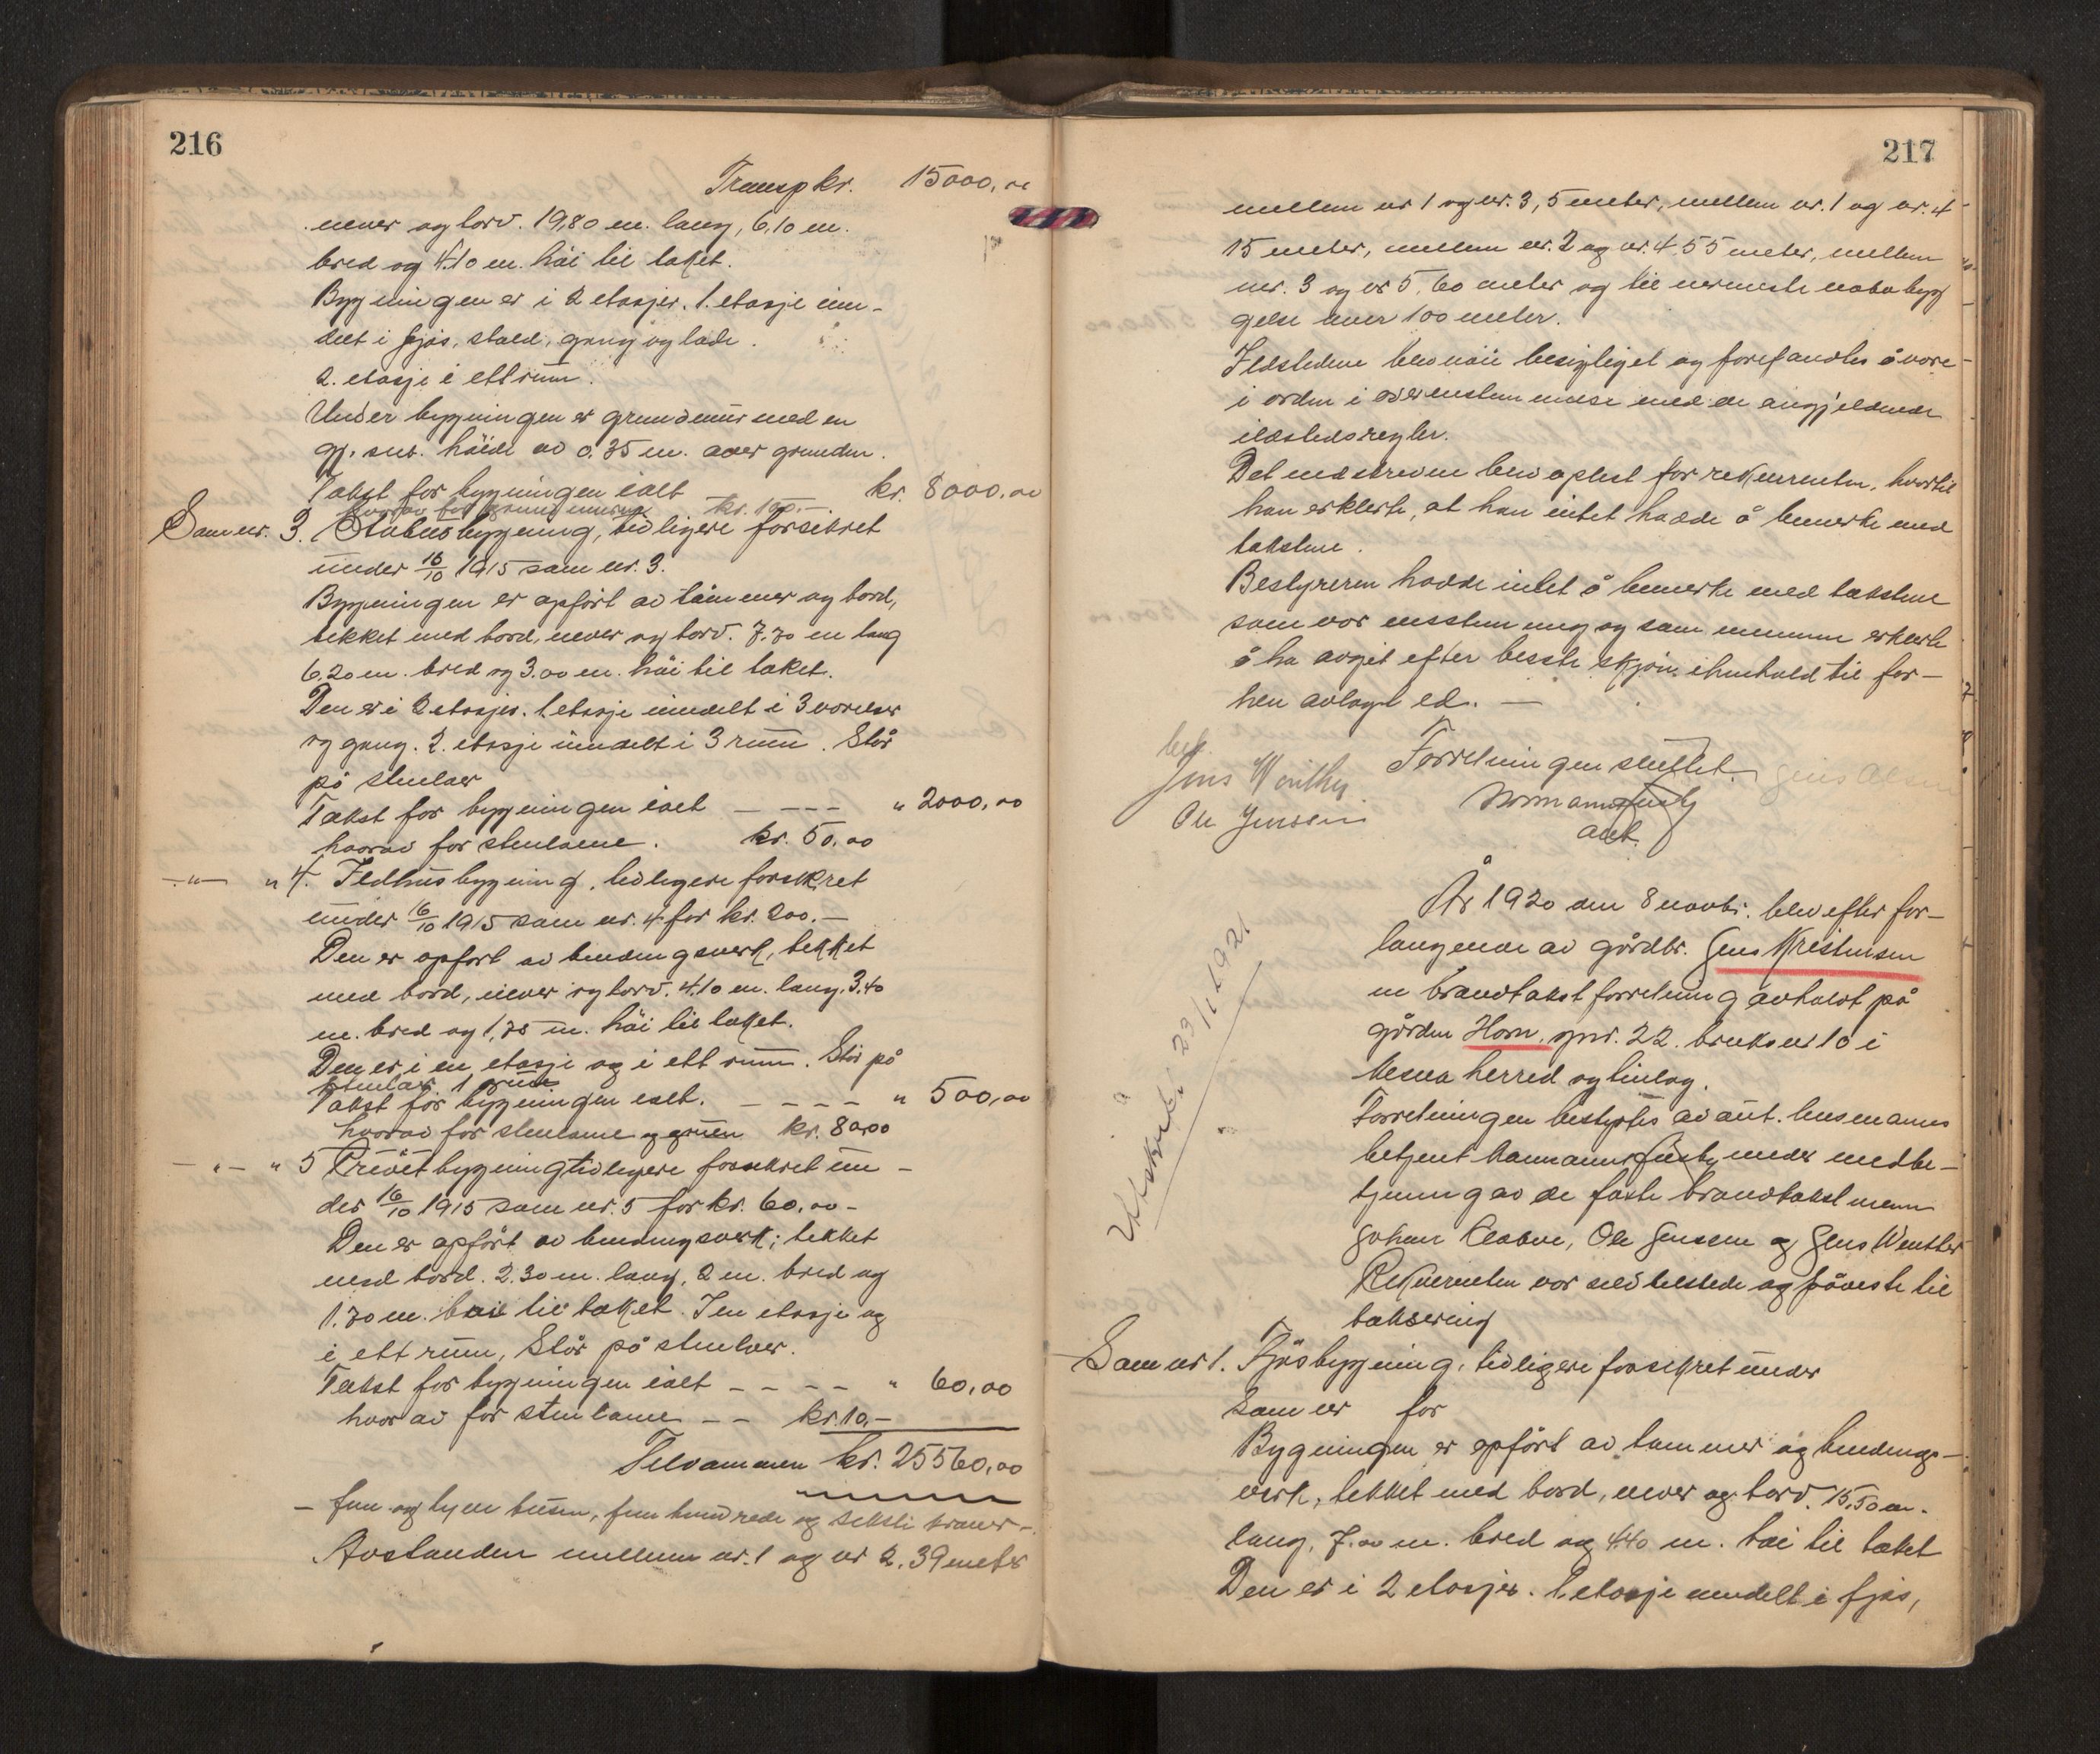 216
Transp kr. 15000,00
never og torv. 19,80 m. lang, 6,10 m.
bred og 4.10 m. höi til taket.
Bygningen er i 2 etasjer. 1. etasje inn-
delt i fjös, stald, gang og lade.
2. etasje i ett rum.
Under bygningen er grundmur med en
gj. sns. höide av 0.35 m. over grunden.
Takst for bygningen ialt kr. 8000,00
hvorav for grundmuren kr. 100.-
Som nr. 3. Stabursbygning, tidligere forsikret
under 16/10 1915 som nr. 3.
Bygningen er opfört av tömmer og bord,
tekket med bord, never og torv. 7.70 m lang
6.20 m. bred og 3.00 m. höi til taket.
Den er i 2 etasjer. 1 etasje inndelt i 3 værelser
og gang. 2. etasje inndelt i 3 rum. Står
på stenlaer
Takst for bygningen ialt - - - - " 2000,00
hvorav for stenlaene. kr. 50.00
-"- " 4. Ildhusbygning, tidligere forsikret
under 16/10 1915 som nr. 4 for kr. 200.-
Den er opfört av bindingsverk, tekket
med bord, never og torv. 4.10 m. lang, 3.40
m. bred og 1,75 m. höi til taket.
Den er i en etasje og i ett rum. Står på
stenlaer. 1 grue
Takst for bygningen ialt. - - - - " 500,00
hvorav for stenlaene og gruen kr. 80,00
-"- " 5 Privetbygning tidligere forsikret un-
der 16/10 1915 som nr. 5 for kr. 60,00-
Den er opfört av bindingsverk; tekket
med bord. 2.30 m. lang, 2 m. bred og
1.70 m. höi til taket. I en etasje og
i ett rum, Står på stenlaer.
Takst for bygningen ialt - - - - " 60,00
hvorav for stenlaene - - kr. 10,-
Tilsammen kr. 25560,00
- fem og tyve tusen, fem hundrede og seksti kroner -.
Avstanden mellem nr. 1 og nr 2, 39 meter
217
mellem nr 1 og nr. 3, 5 meter, mellem nr. 1 og nr. 4
15 meter, mellem nr. 2 og nr. 4, 55 meter, mellem
nr. 3 og nr 5, 60 meter og til nermeste nabobyg
gelse over 100 meter.
Ildstedene blev nöie besigtiget og forefandtes å være
i orden i overenstemmelse med de angjeldende
ildstedsregler.
Det nedskrevne blev oplest for rekvirenten, hvortil
han erklerte, at han intet hadde å bemerke med
takstene.
Bestyreren hadde intet å bemerke med takstene
som var enstemmig og som mennene erklerte
å ha avgit efter beste skjön ihenhold til for-
hen avlagt ed. -
Forretningen sluttet.
Jens Wenther Jens Olsen
Ole Jensen
aut.
År 1920 den 8 novbr. blev efter for-
langende av gårdbr. Jens Kristensen
en brandtakstforretning avholdt på
gården Horn, gnr. 22. bruksnr 10 i
Vesna herred og tinlag.
Forretningen bestyrtes av aut. lensmanns
betjent under medbe-
tjening av de faste brandtakstmenn
Johan Klaboe, Ole Jensen og Jens Wenther
Rekvirenten var selv tilstede og påviste til
taksering
Som nr 1. Fjösbygning, tidligere forsikret under
Som nr for
Bygningen er opfört av tömmer og bindings-
verk, tekket med bord, never og torv. 15,50 m.
lang, 7.00 m. bred og 4.40 m. höi til taket
Den er i 2 etasjer. 1. etasje inndelt i fjös,
Utskrevet 23/1 1921